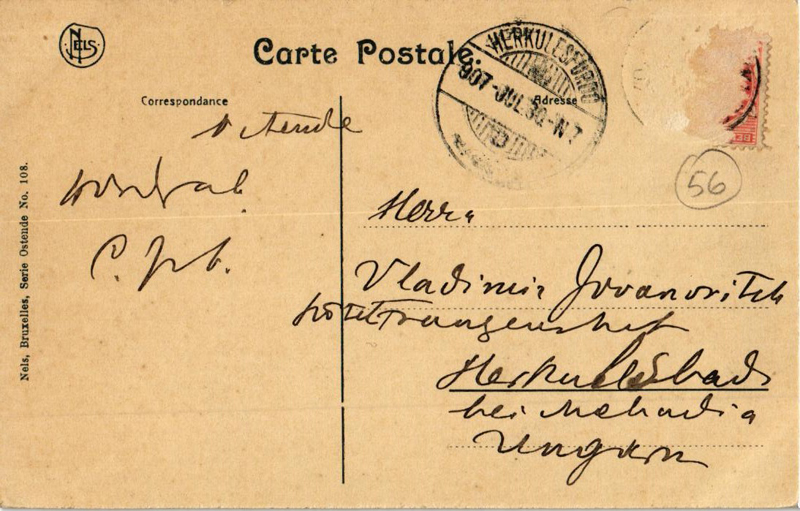 NELS
Carte Postale.
HERKULESFÜRDŐ
907-JUL.30.-N7
Correspondance
Adresse
Ostende
56
Herrn
Vladimir Jovanovitch
Hôtel Franzenshof
Herkulesbad
bei Mehadia
Ungarn
Nels, Bruxelles, Serie Ostende No. 108.